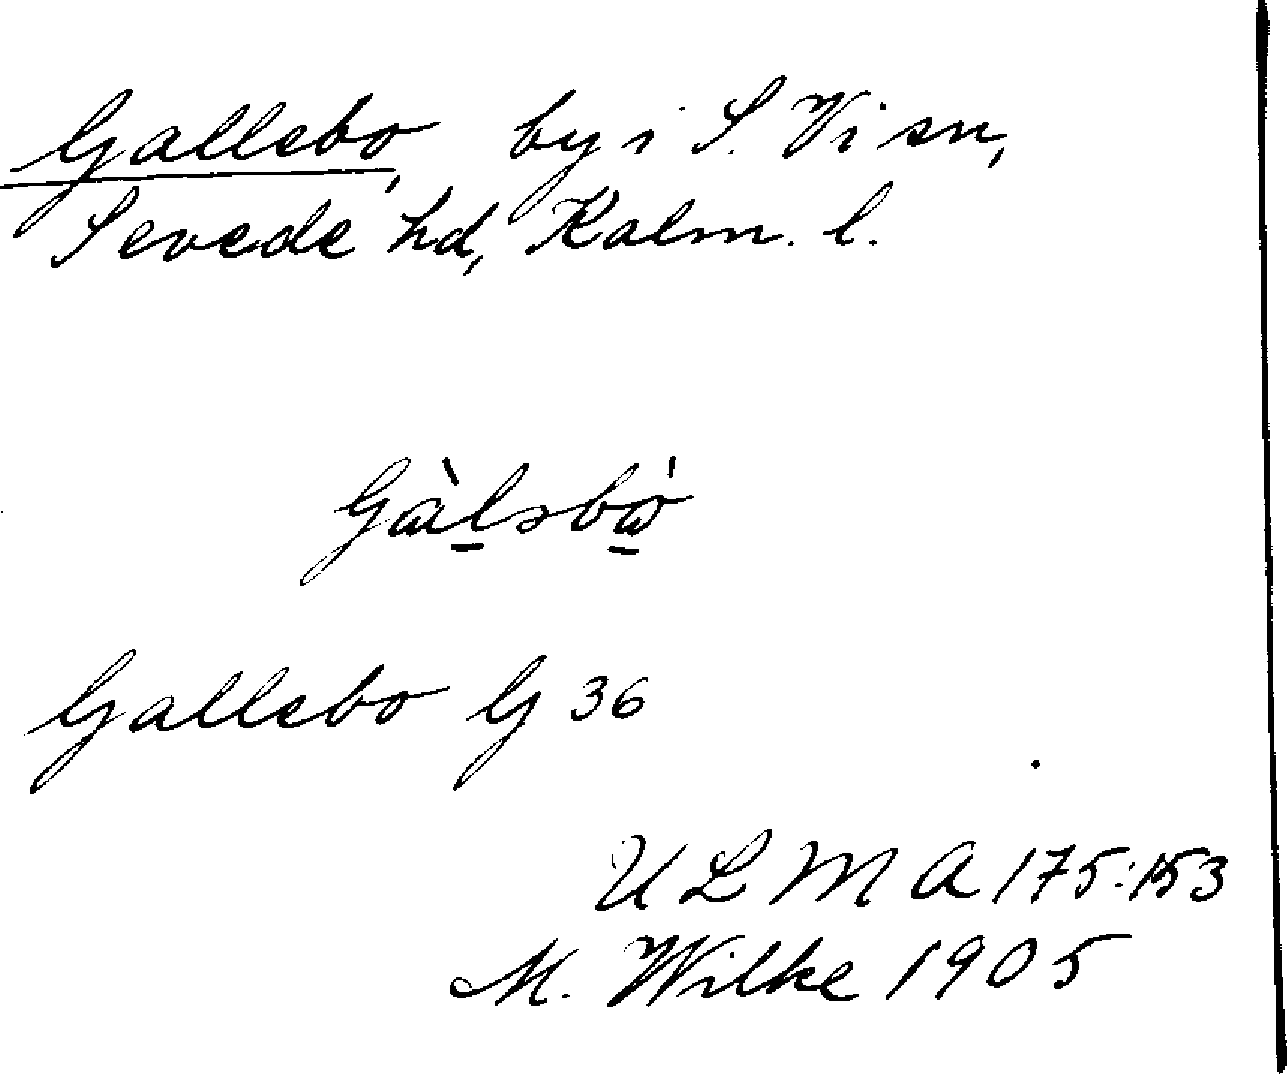 Gallebo, by i S. Vi sn,
Sevede hd, Kalm. l.
Gàlsbo̱
Gallebo G 36
ULMA 175:153
M. Wilke 1905